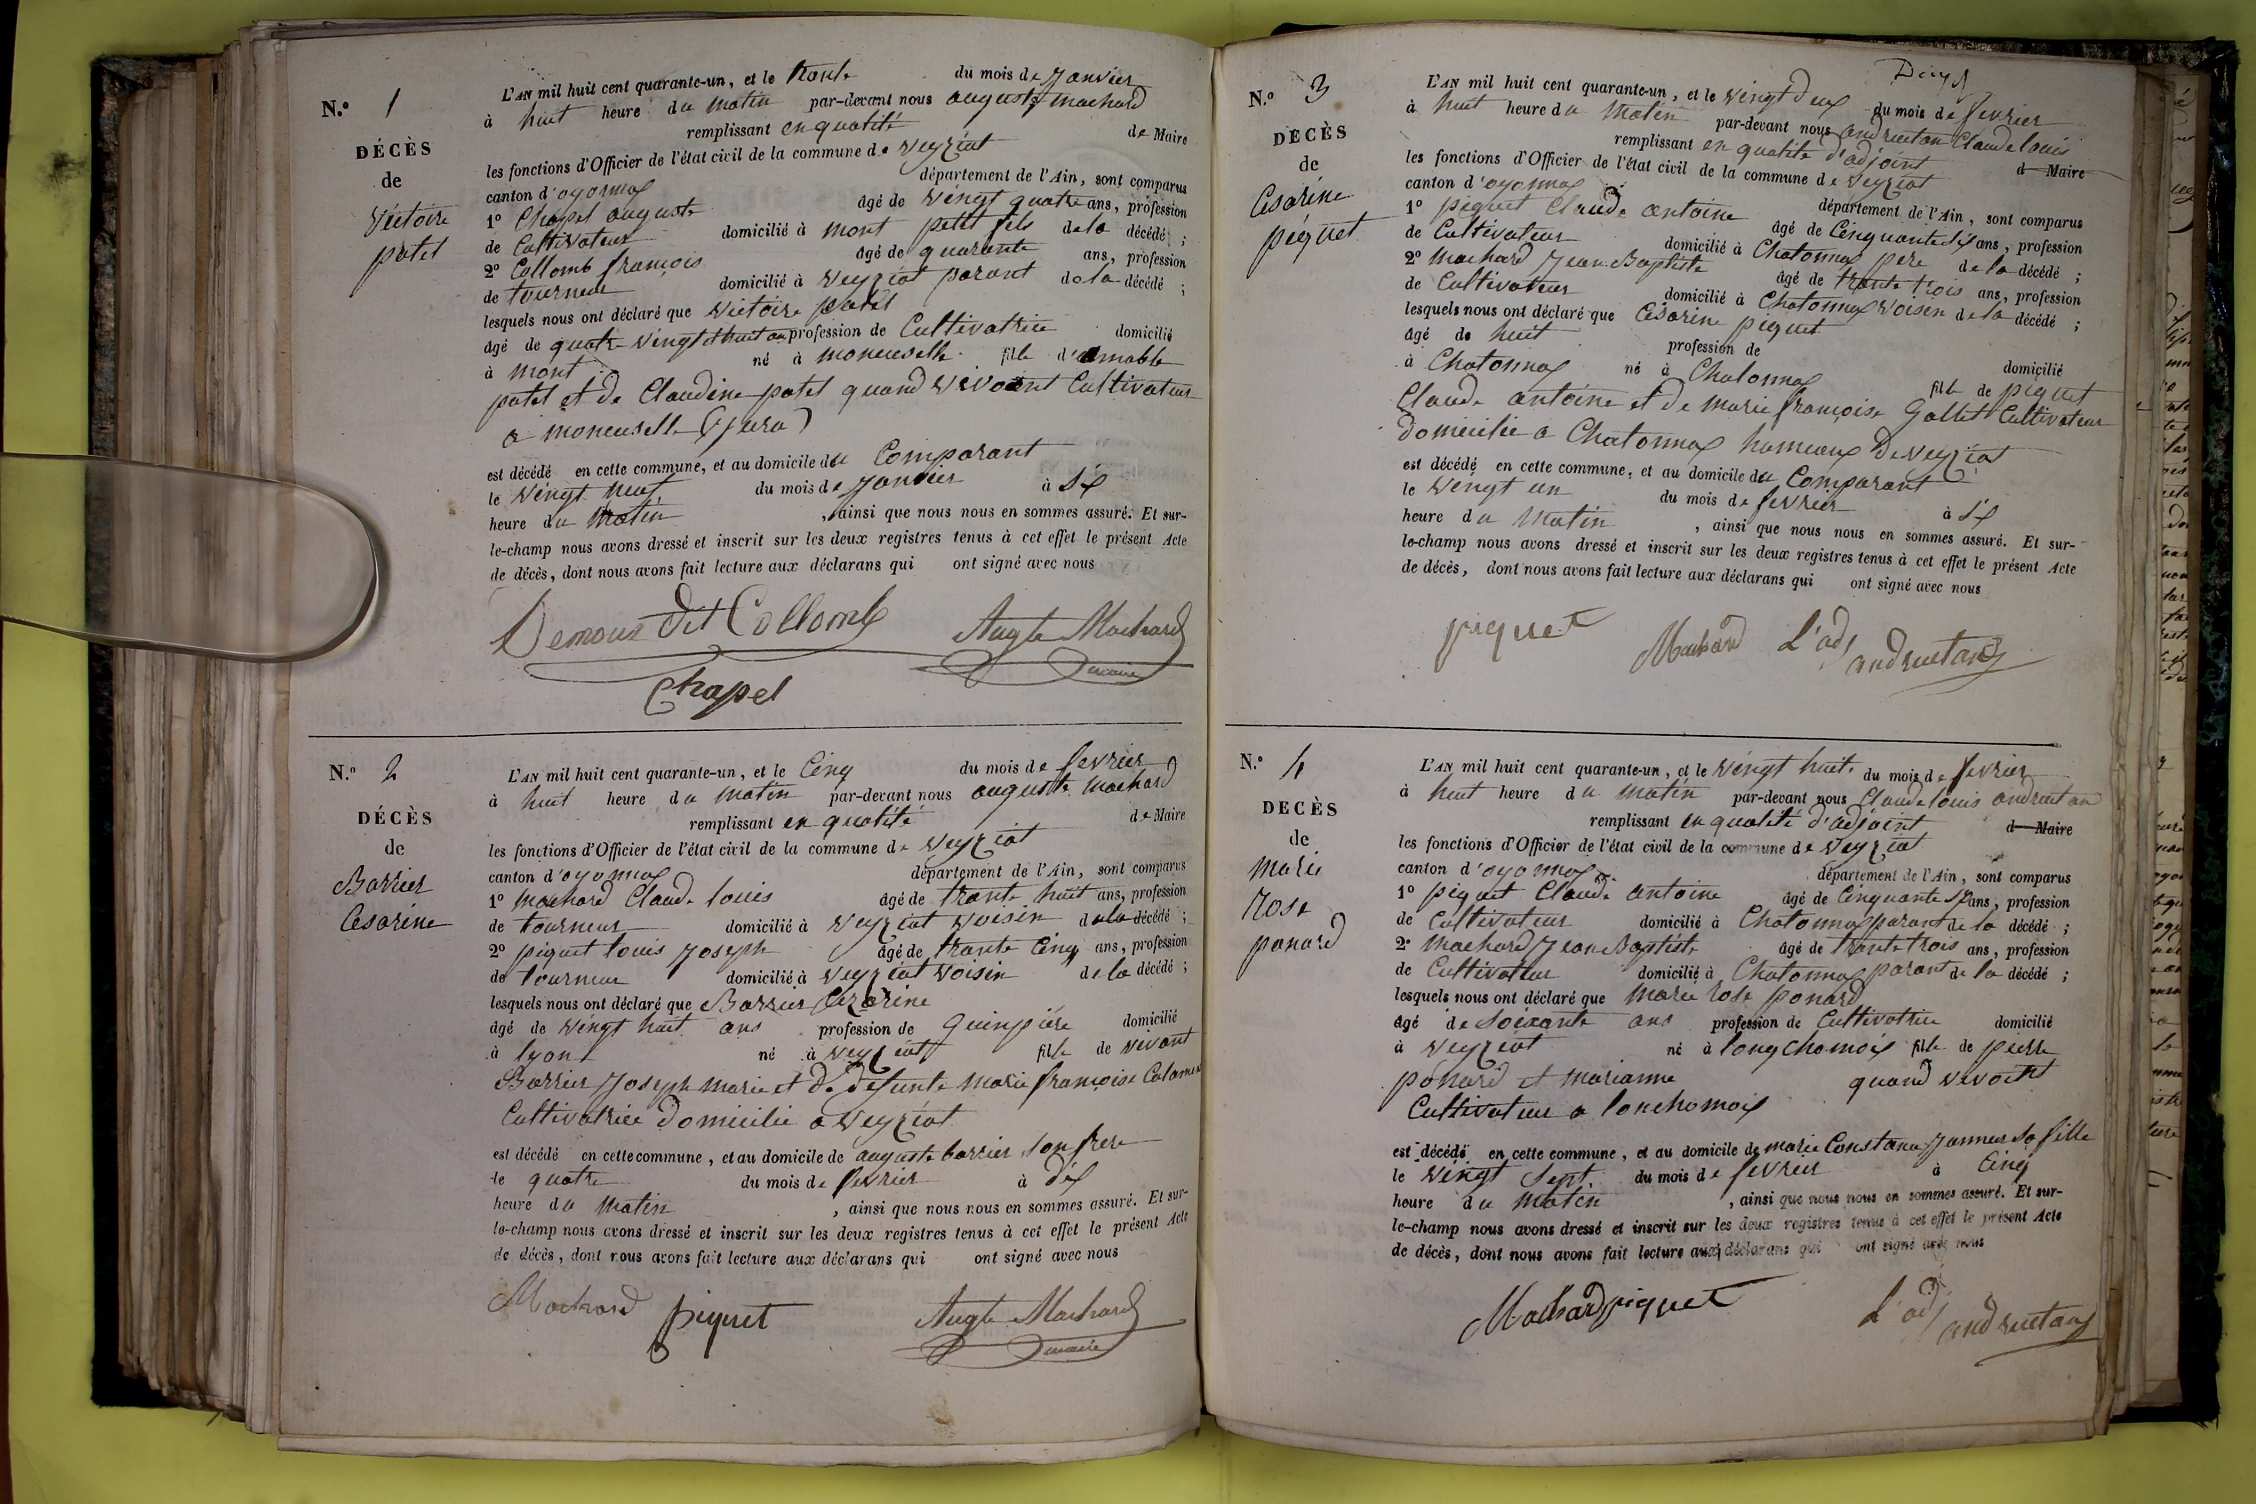 N.º 1
DÉCÈS
de
Victoire
patel
L'AN mil huit cent quarante-un, et le trente du mois de Janvier
à huit heure du matin par-devant nous auguste machard
remplissant en qualité de Maire
les fonctions d'Officier de l'état civil de la commune de veyziat
canton d'oyonnax département de l'Ain, sont comparus
1º Chapel auguste âgé de vingt quatre ans, profession
de Cultivateur domicilié à mont petit fils de la décédé ;
2º Collomb françois âgé de quarante ans, profession
de tourneur domicilié à veyziat parant de la décédé ;
lesquels nous ont déclaré que victoire patel
âgé de quatre vingt et huit an profession de Cultivatrice domicilié
à mont né à moncuselle fille d'amable
patel et de Claudine patel quand vivoant Cultivateur
a moncuselle (jura)
est décédé en cette commune, et au domicile du Comparant
le vingt neuf du mois de Janvier à six
heure du matin, ainsi que nous nous en sommes assuré. Et sur-
le-champ nous avons dressé et inscrit sur les deux registres tenus à cet effet le présent Acte
de décès, dont nous avons fait lecture aux déclarans qui ont signé avec nous
Demoux dit Collomb Augte Machard
maire
Chapel
N.º 2
DÉCÈS
de
Barrier
Cesarine
L'AN mil huit cent quarante-un, et le Cinq du mois de fevrier
à huit heure du matin par-devant nous auguste machard
remplissant en qualité de Maire
les fonctions d'Officier de l'état civil de la commune de veyziat
canton d'oyonnax département de l'Ain, sont comparus
1º machard Claude louis âgé de trante huit ans, profession
de tourneur domicilié à veyziat voisin de la décédé ;
2º piquet louis Joseph âgé de trante Cinq ans, profession
de tourneur domicilié à veyziat voisin de la décédé ;
lesquels nous ont déclaré que Barrier Cezarine
âgé de vingt huit ans profession de Guimpière domicilié
à lyon né à veyziat fille de vivant
Barrier Joseph marie et de defunte marie françoise
Cultivatrice domicilie a veyziat
est décédé en cette commune, et au domicile de auguste barrier son frere
le quatre du mois de fevrier à dix
heure du matin, ainsi que nous nous en sommes assuré. Et sur-
le-champ nous avons dressé et inscrit sur les deux registres tenus à cet effet le présent Acte
de décès, dont nous avons fait lecture aux déclarans qui ont signé avec nous
Machard piquet Augte Machard
maire
N.º 3
DÉCÈS
de
Cesarine
piquet
L'AN mil huit cent quarante-un, et le vingt deux du mois de fevrier
à huit heure du matin par-devant nous andruetan Claude louis
remplissant en qualité d'adjoint d Maire
les fonctions d'Officier de l'état civil de la commune de veyziat
canton d'oyonnax département de l'Ain, sont comparus
1º piquet Claude antoine âgé de Cinquante six ans, profession
de Cultivateur domicilié à Chatonnax pere de la décédé ;
2º machard Jean Baptiste âgé de trante trois ans, profession
de Cultivateur domicilié à Chatonnax voisin de la décédé ;
lesquels nous ont déclaré que Césarine piquet
âgé de huit profession de domicilié
à Chatonnax né à Chatonnax fille de piquet
Claude antoine et de marie françoise Gollet Cultivateur
domicilie a Chatonnax hameaux de veyziat
est décédé en cette commune, et au domicile du Comparant
le vingt un du mois de fevrier à six
heure du matin, ainsi que nous nous en sommes assuré. Et sur-
le-champ nous avons dressé et inscrit sur les deux registres tenus à cet effet le présent Acte
de décès, dont nous avons fait lecture aux déclarans qui ont signé avec nous
piquet Machard L'adj
andruetan
N.º 4
DECÈS
de
marie
rose
ponard
L'AN mil huit cent quarante-un, et le vingt huit du mois de fevrier
à huit heure du matin par-devant nous Claude louis andruetan
remplissant en qualité d'adjoint d Maire
les fonctions d'Officier de l'état civil de la commune de veyziat
canton d'oyonnax département de l'Ain, sont comparus
1º piquet Claude antoine âgé de Cinquante six ans, profession
de Cultivateur domicilié à Chatonnax parant de la décédé ;
2º machard Jean Baptiste âgé de trante trois ans, profession
de Cultivateur domicilié à Chatonnax parant de la décédé ;
lesquels nous ont déclaré que marie rose ponard
âgé de soixante ans profession de Cultivatrice domicilié
à veyziat né à longchomois fille de pierre
ponard et marianne quand vivoitt
Cultivateur a lonchomoix
est décédé en cette commune, et au domicile de marie Constance Janneur sa fille
le vingt sept du mois de fevrier à Cinq
heure du matin, ainsi que nous nous en sommes assuré. Et sur-
le-champ nous avons dressé et inscrit sur les deux registres tenus à cet effet le présent Acte
de décès, dont nous avons fait lecture aux déclarans qui ont signé avec nous
Machard piquet L'adj
andruetan